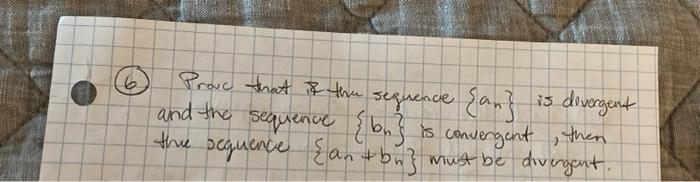 6 Prove that if the sequence {an} is divergent
and the sequence {bn} is convergent, then
the sequence {an + bn} must be divergent.